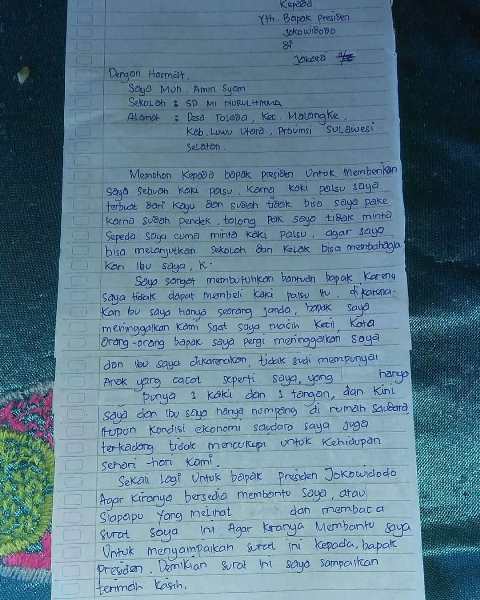 Kepada
Yth. Bapak Presiden
Jokowidodo
di
Jakarta
Dengan Hormat,
Saya Muh. Amin Syam
Sekolah : SD MI NURUL HIKMA
Alamat : Desa Tolada, Kec. Malangke,
Kab. Luwu Utara, Provinsi Sulawesi
Selatan.
Memohon Kepada bapak presiden Untuk Memberikan
saya sebuah kaki palsu, karna kaki palsu saya
terbuat dari kayu dan sudah tidak bisa saya pake
karna sudah pendek, tolong pak saya tidak minta
sepeda saya cuma minta kaki palsu, agar saya
bisa melanjutkan sekolah dan kelak bisa membahagia
kan ibu saya,
Saya sangat membutuhkan bantuan bapak karena
saya tidak dapat membeli kaki palsu itu, dikarena-
kan ibu saya hanya seorang janda, bapak saya
meninggalkan kami saat saya masih kecil, kata
orang-orang bapak saya pergi meninggalkan saya
dan ibu saya dikarenakan, tidak sudi mempunyai
Anak yang cacat seperti saya, yang hanya
punya 1 kaki dan 1 tangan, dan kini
saya dan ibu saya hanya numpang di rumah saudara
itupun kondisi ekonomi saudara saya juga
terkadang tidak mencukupi untuk kehidupan
sehari-hari kami.
Sekali lagi Untuk bapak presiden Jokowidodo
Agar kiranya bersedia membantu saya, atau
siapapu yang melihat dan membaca
surat saya ini Agar kiranya Membantu saya
Untuk menyampaikan surat ini kepada, bapak
presiden. Demikian surat ini saya sampaikan
terimah kasih.